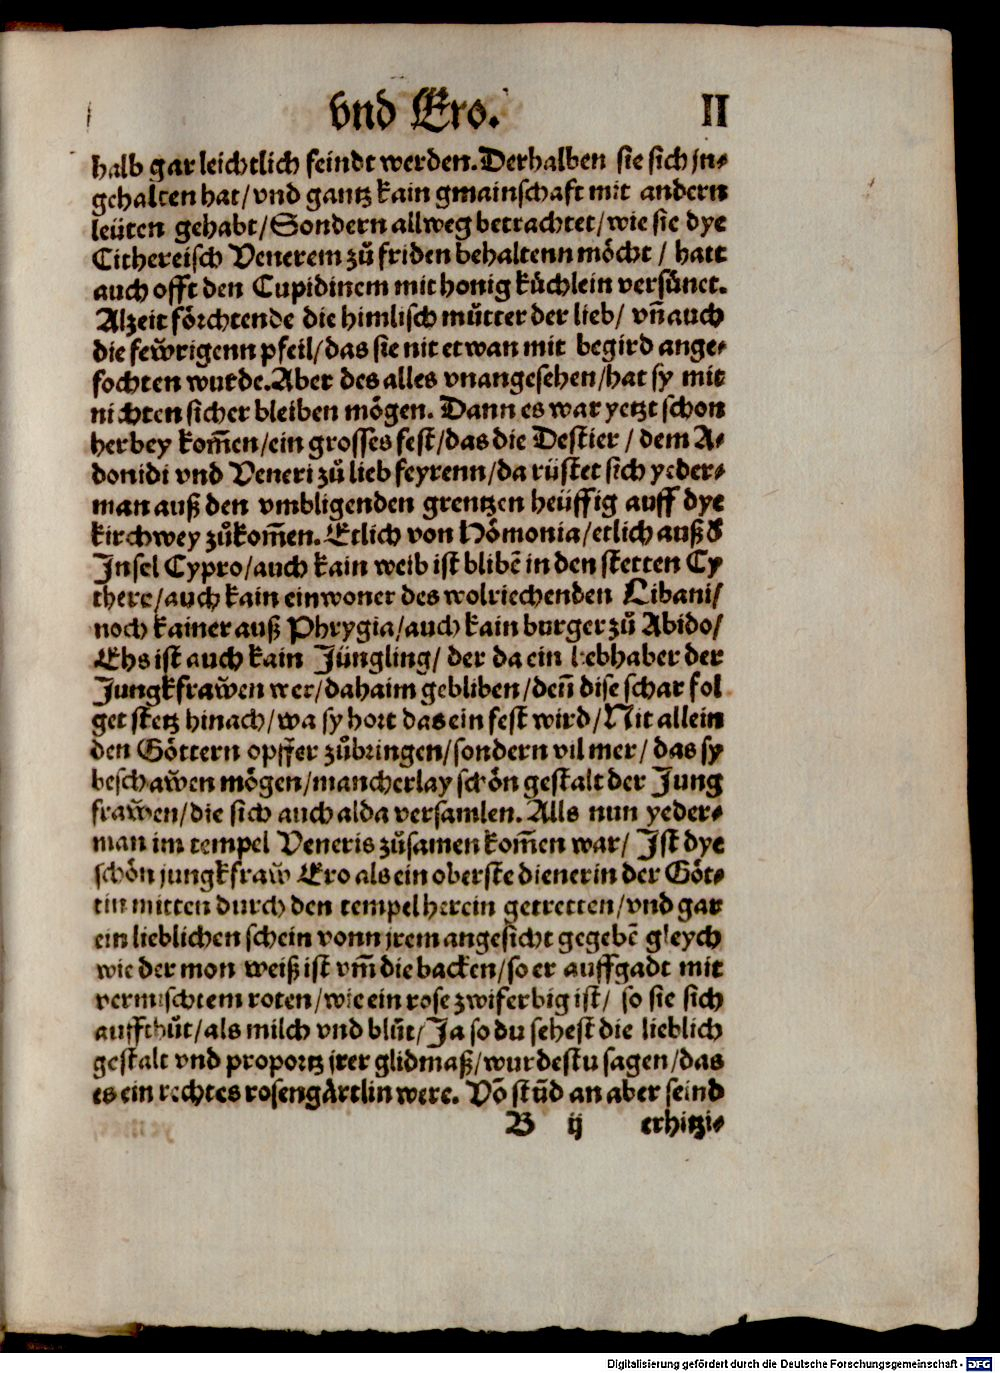 vnd Ero. II
halb gar leichtlich feindt werden. Derhalben sie sich jn⸗
gehalten hat/ vnd gantz kain gmainschaft mit andern
leüten gehabt/ Sondern allweg betrachtet/ wie sie dye
Cithereisch Venerem zuͦ friden behaltenn moͤcht / hatt
auch offt den Cupidinem mit honig kuͤchlein versuͤnet.
Alzeit foͤrchtende die himlisch muͤtter der lieb/ vñ auch
die feẅrigenn pfeil/ das sie nit etwan mit begird ange⸗
fochten wurde. Aber des alles vnangesehen/ hat sy mit
nichten sicher bleiben moͤgen. Dann es war yetzt schon
herbey kom̃en/ ein grosses fest/ das die Destier / dem A⸗
donidi vnd Veneri zuͦ lieb feyrenn/ da rüstet sich yeder⸗
man auß den vmbligenden grentzen heüffig auff dye
kirchwey zuͦkom̃en. Etlich von Hoͤmonia/ etlich auß d̕
Insel Cypro/ auch kain weib ist blibẽ in den stetten Cy
there/ auch kain einwoner des wolriechenden Libani/
noch kainer auß Phrygia/ auch kain burger zuͦ Abido/
Ehs ist auch kain Jüngling/ der da ein liebhaber der
Jungkfraẅen wer/ dahaim gebliben/ deñ dise schar fol
get stetz hinach/ wa sy hort das ein fest wird/ Nit allein
den Goͤttern opffer zuͦbringen/ sondern vil mer/ das sy
beschaẅen moͤgen/ mancherlay schoͤn gestalt der Jung
fraẅen/ die sich auch alda versamlen. Alls nun yeder⸗
man im tempel Veneris zuͦsamen kom̃en war/ Ist dye
schoͤn jungkfraẅ Ero als ein oberste dienerin der Goͤt⸗
tin mitten durch den tempel herein getretten/ vnd gar
ein lieblichen schein vonn jrem angesicht gegebẽ gleych
wie der mon weiß ist vm̃ die backen/ so er auffgadt mit
vermischtem roten/ wie ein rose zwiferbig ist/ so sie sich
auffthuͦt/ als milch vnd bluͦt/ Ja so du sehest die lieblich
gestalt vnd proportz jrer glidmaß/ wurdestu sagen/ das
es ein rechtes rosengaͤrtlin were. Võ stũd an aber seind
B ij erhitzi⸗
Digitalisierung gefördert durch die Deutsche Forschungsgemeinschaft - DFG